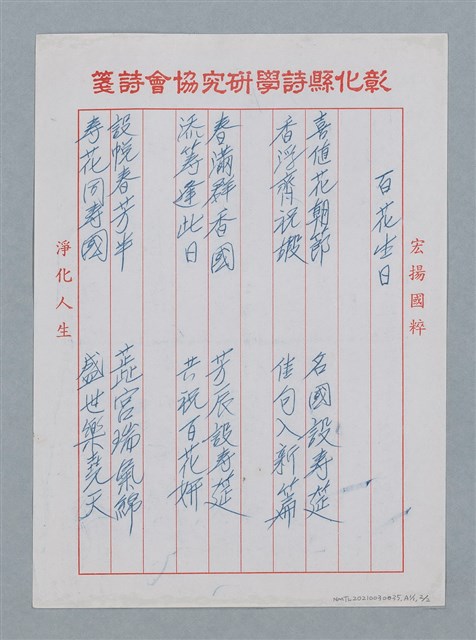 彰化縣詩學研究協會詩箋
宏揚國粹
百花生日
喜值花朝節 名國設壽筵
香浮齊祝嘏 佳句入新篇
春滿群香國 芳辰設壽筵
添筹逢此日 共祝百花妍
設帨春芳半 蕋宮瑞氣綿
壽花同壽國 盛世樂堯天
淨化人生